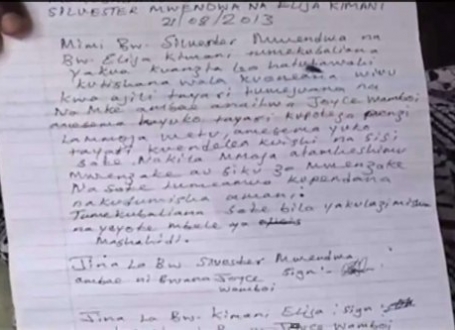 SILVESTER MWENDWA NA ELIJA KIMANI
21/08/2013
Mimi Bw. Silvester Mwendwa na
Bw. Elija Kimani, tumekubaliana
yakwa kuanzia leo hatutawahi
kutishana wala kuoneana wivu
kwa ajili tayari tumejuana na
Na Mke ambae anaitwa Joyce Wamboi
amesema hayuko tayari kupoteza penzi
La mmoja wetu, amesema yuko
tayari kuendelea kuishi na sisi
sote. Na kila mmoja atamheshimu
Mwenzake au siku za Mwenzake
Na sote tumeamwo kupendana
nakudumisha amani.
Tumekubaliana sote bila yakulazimishwa
na yeyote mbele ya
Mashahidi.
Jina La Bw Silvester Mwendwa
ambae ni Bwana Joyce sign:-
Wamboi
Jina La Bw. Kimani, Elija: sign:
Joyce Wamboi